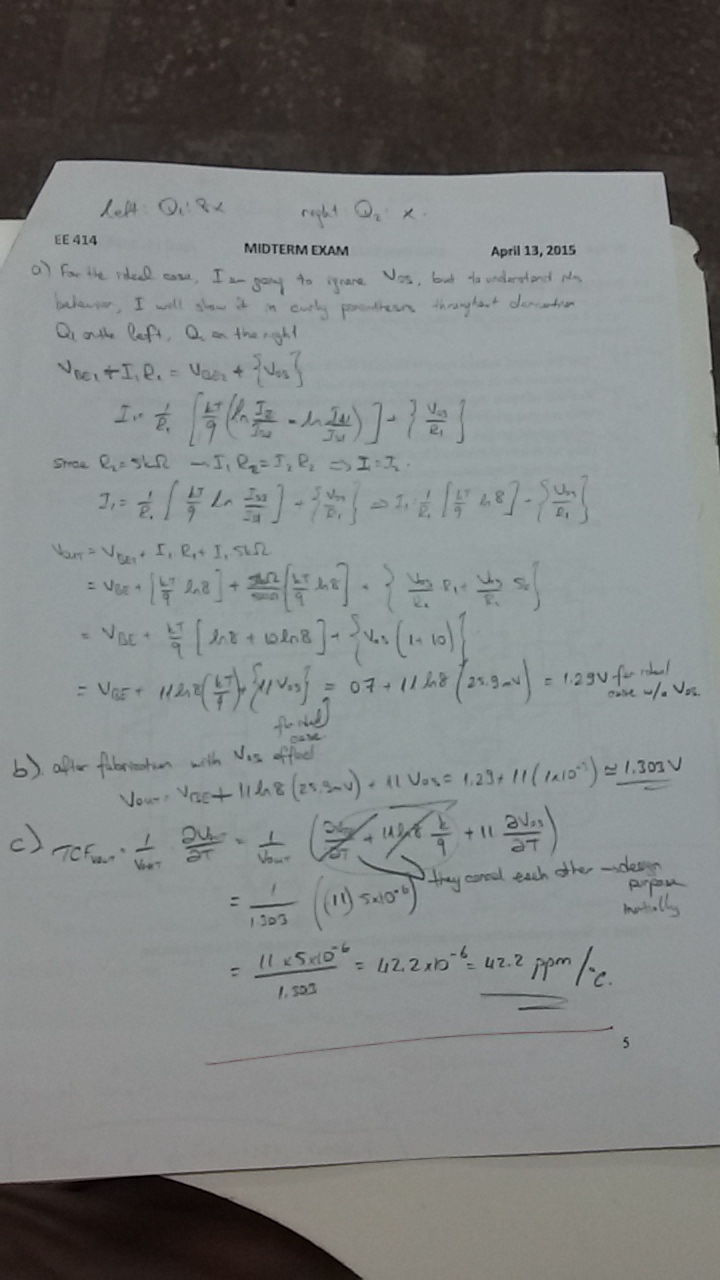 left: Q₁: 8x right: Q₂: x.
EE 414 MIDTERM EXAM April 13, 2015
a) For the ideal case, I am going to ignore Vos, but to understand its
behavior, I will show it in curly parenthesis throughout derivation
Q₁ on the left, Q₂ on the right
V_BE1 + I₁R₁ = V_BE2 + {Vos}
I₁ = 1/R₁ [kT/q (ln I₂/ - ln )] + {Vos/R₁}
since = 5kΩ → I₁ R₂ = I₂ R₂ ⇒ I₁ = I₂
I₁ = 1/R₁ [kT/q ln ] + {Vos/R₁} ⇒ I₁ = 1/R₁ [kT/q ln 8] + {Vos/R₁}
V_OUT = V_BE1 + I₁ R₁ + I₁ 5kΩ
= V_BE + [kT/q ln8] + 5kΩ/500 [kT/q ln8] + {Vos/R₁ R₁ + Vos/R₁ 5k}
= V_BE + kT/q [ln8 + 10 ln8] + {Vos (1+10)}
= V_BE + 11 ln8 (kT/q) + {11 Vos} = 0.7 + 11 ln8 (25.9mV) = 1.29V for ideal
case w/o Vos.
for ideal
case.
b) after fabrication with Vos effect
Vout = V_BE + 11 ln8 (25.9mV) + 11 Vos = 1.29 + 11 (1x10⁻³) ≅ 1.303V
c) TCF_Vout = 1/Vout ∂Vout/∂T = 1/Vout (∂V_BE/∂T + 11 ln8 k/q + 11 ∂Vos/∂T)
they cancel each other → design
purpose
initially
= 1/1.303 ((11) 5x10⁻⁶)
= 11 x 5x10⁻⁶/1.303 = 42.2 x 10⁻⁶ = 42.2 ppm/°C.
5